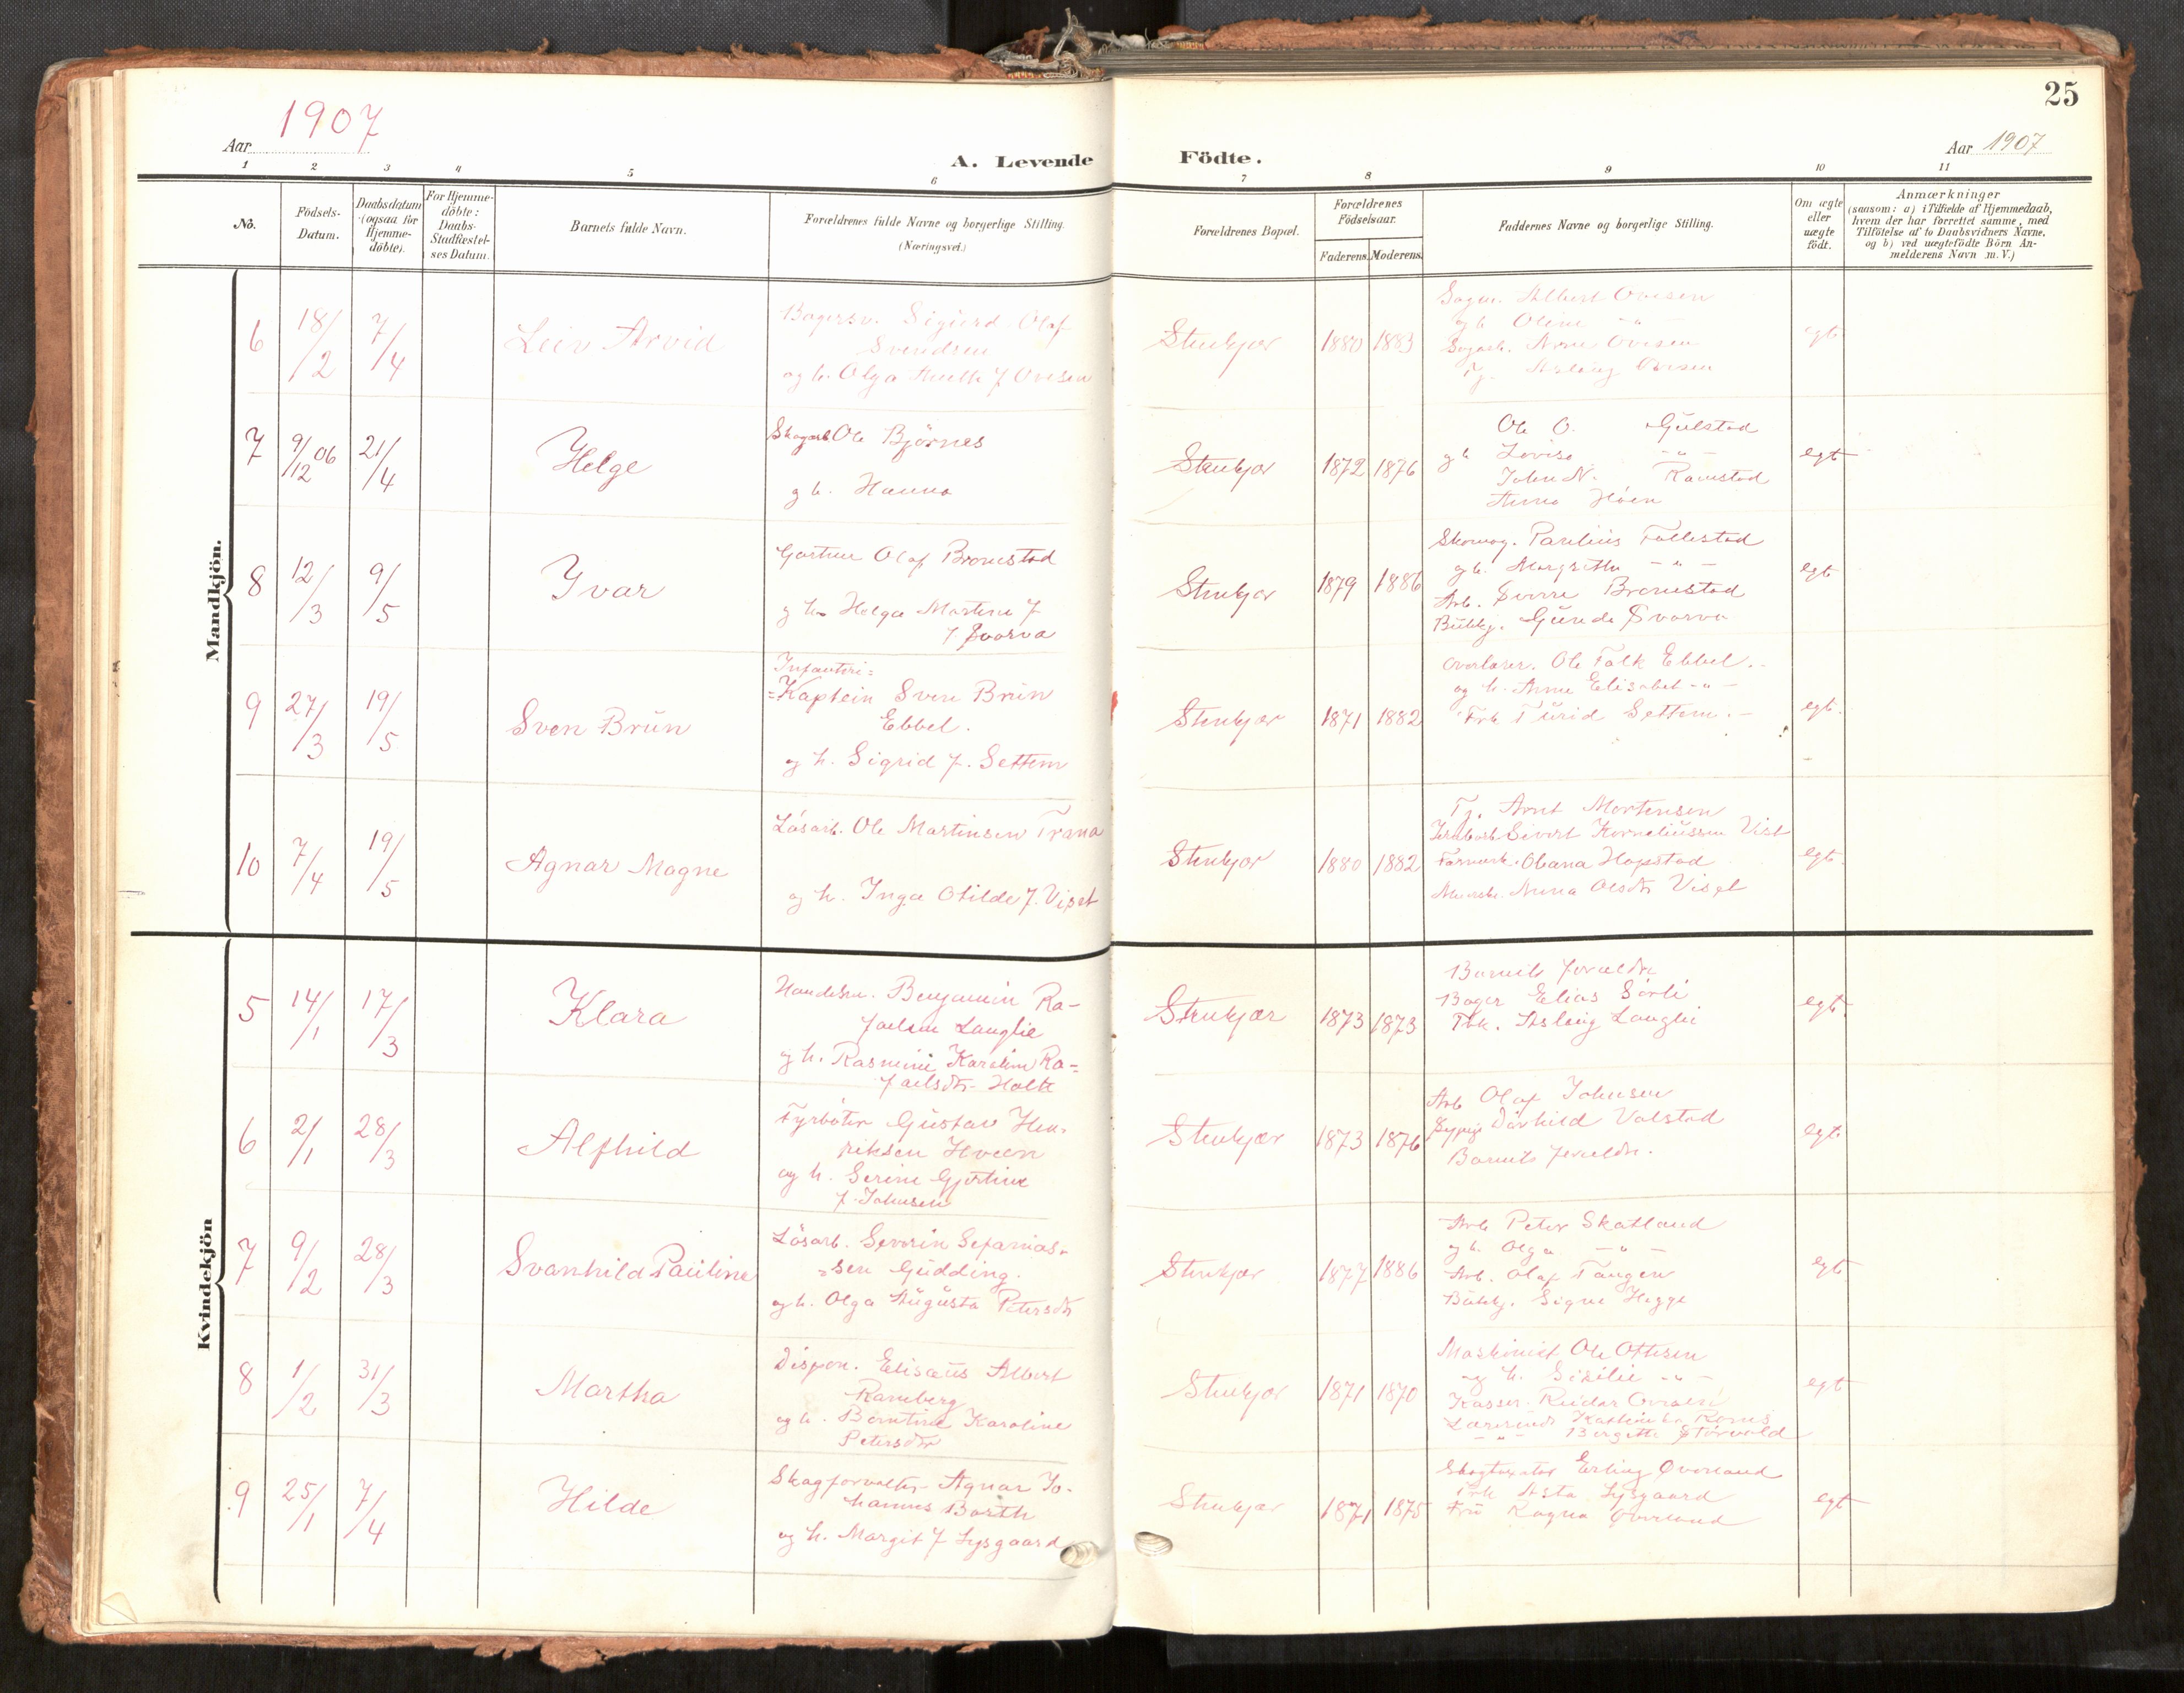 25
Aar 1907
A. Levende Födte.
Aar 1907
1 2 3 4 5 6 7 8 9 10 11
No.
Födsels-Datum.
Daabsdatum (ogsaa for Hjemme-döbte).
For Hjemme-döbte: Daabs-Stadfæstel-ses Datum.
Barnets fulde Navn.
Forældrenes fulde Navne og borgerlige Stilling.
(Næringsvei.)
Forældrenes Bopæl.
Forældrenes Födselsaar.
Faderens. Moderens.
Faddernes Navne og borgerlige Stilling.
Om ægte eller uægte födt.
Anmærkninger
(saasom: a) i Tilfælde af Hjemmedaab,
hvem der har forrettet samme, med
Tilföielse af to Daabsvidners Navne,
og b) ved uægtefödte Börn An-
melderens Navn m. V.)
Mandkjön.
6 18/2 7/4 Leiv Arvid
Bagersv. Sigurd Olaf
Svendsen
og h. Olga Anette f Ovesen
Stenkjær 1880 1883
Sagm. Albert Ovesen
gh Oline - " -
Sagarb. Arne Ovesen
Tj. Aslaug Ovesen
egt
7 9/12 06 21/4 Helge
Skogarb Ole Björnes
g h. Hanna
Stenkjær 1872 1876
Ole O. Gulstad
g h Lovise - " -
John N. Ramstad
Anna Höen
egt
8 12/3 9/5 Yvar
Gartner Olaf Bromstad
g h. Helga Martine f
f Svarva
Stenkjær 1879 1886
Skomag. Paulius Follestad
g h. Margrethe - " -
Arb. Sverre Bromstad
Butikj. Gunda Svarva
egt
9 27/3 19/5 Sven Brun
Infanteri=
=Kaptein Sven Brun
Ebbel.
g h. Sigrid f. Settem
Stenkjær 1871 1882
Overlærer. Ole Falk Ebbel.
og h. Anne Elisabeth - " -
Frk Turid Settem.
egt.
10 7/4 19/5 Agnar Magne
Lösarb. Ole Martinsen Trana
g h. Inga Otilde f. Vist
Stenkjær 1880 1882
Tj. Arnt Mortensen
Sivert Korneliussen Vist
Obana Hopstad
Anna Olsdtr Visel
egt.
Kvindekjön
5 14/1 17/3 Klara
Handelsm. Benjamin Ra-
faelsen Langlie
g h. Rasmine Karoline Ra=
faelsdtr Holte
Stenkjær 1873 1873
Barnets forældre
Bager Elias Sörli
Frk. Aslaug Langlie
egt.
6 2/1 28/3 Alfhild
Fyrböter Gustav Hen-
riksen Hveen
og h. Serine Gjertine
f. Johnsen
Stenkjær 1873 1876
Arb Olaf Johnsen
Sypige Dorhild Valstad
Barnets forældre.
egt.
7 9/2 28/3 Svanhild Pauline
Lösarb. Severin Sefanias-
=sen Gudding.
og h. Olga Augusta Petersdtr
Stenkjær 1877 1886
Arb Peter Skatland
g h. Olga - " -
Arb. Olaf Tangen
Butikj. Signe Hegge
egt
8 1/2 31/3 Martha
Dispon. Elisæus Albert
Ramberg
og h. Berntine Karoline
Petersdtr
Stenkjær 1871 1870
Maskinist Ole Ottesen
g h. Sesilie - " -
Kasser. Reidar Ovesen
Lærerinde Kathinka Romes
- " - Bergitte Störvold
egt
9 25/1 7/4 Hilde
Skogforvalter Agnar Jo-
hannes Barth
og h. Margit f Lysgaard
Stenkjær 1871 1875
Skogtaxator Erling Överland
Frk Asta Lysgaard
Fru Ragna Överland
egt